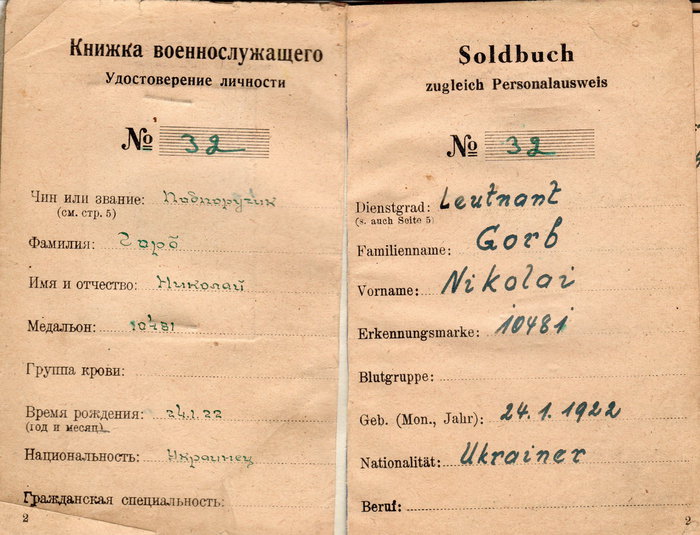 Книжка военнослужащего
Удостоверение личности
№ 32
Чин или звание: Подпоручик
(см. стр. 5)
Фамилия: Горб
Имя и отчество: Николай
Медальон: 10481
Группа крови:
Время рождения: 24.1.22
(год и месяц)
Национальность: Украинец
Гражданская специальность:
2
Soldbuch
zugleich Personalausweis
№ 32
Dienstgrad: Leutnant
(s. auch Seite 5)
Familienname: Gorb
Vorname: Nikolai
Erkennungsmarke: 10481
Blutgruppe:
Geb. (Mon., Jahr): 24.1.1922
Nationalität: Ukrainer
Beruf:
2